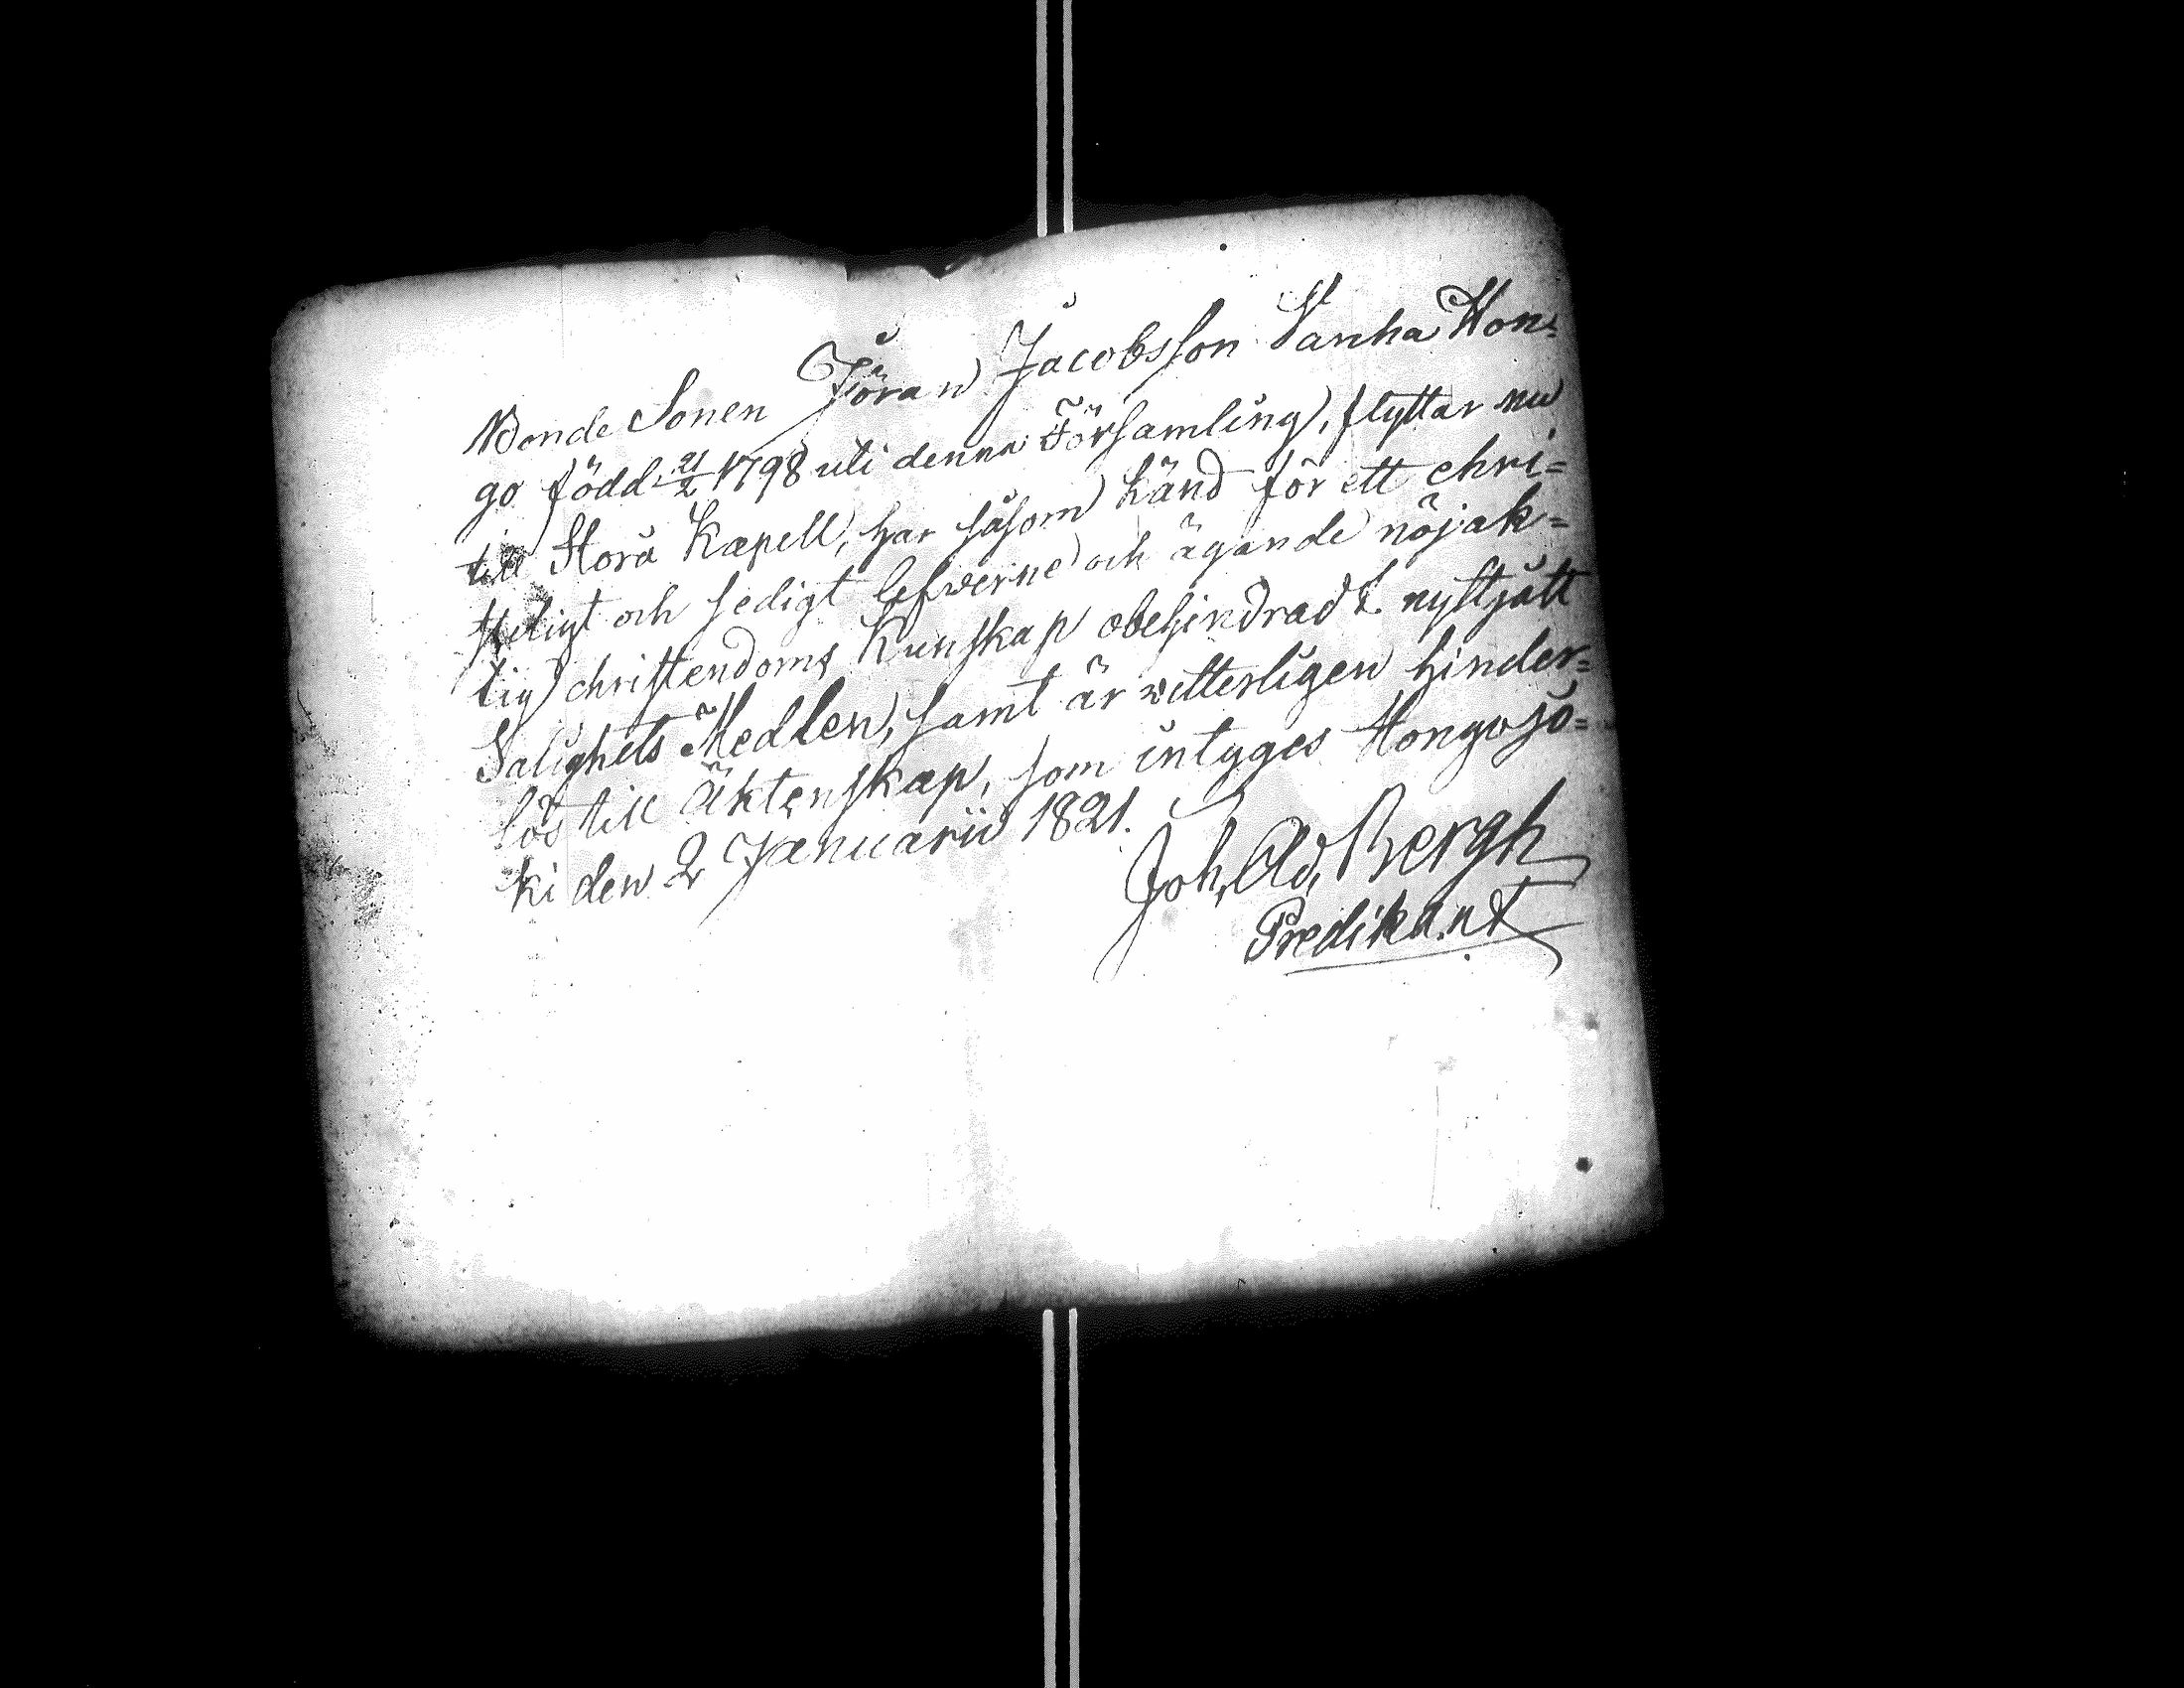 Bonde Sonen Jöran Jacobsson Vanha Hon-
go född 21/2 1798 uti denna Församling, flyttar nu
till Storå Kapell, har såsom känd för ett chri=
steligt och sedigt lefwerne och ägande nöjak=
tig christendoms Kunskap obehindradt nyttjatt
Salighets Medlen, samt är vitterligen hinder=
lös till Äktenskap, som intyges Hongojo=
ki den 2 Januarii 1821.
Joh. Ad. Bergh
Predikant